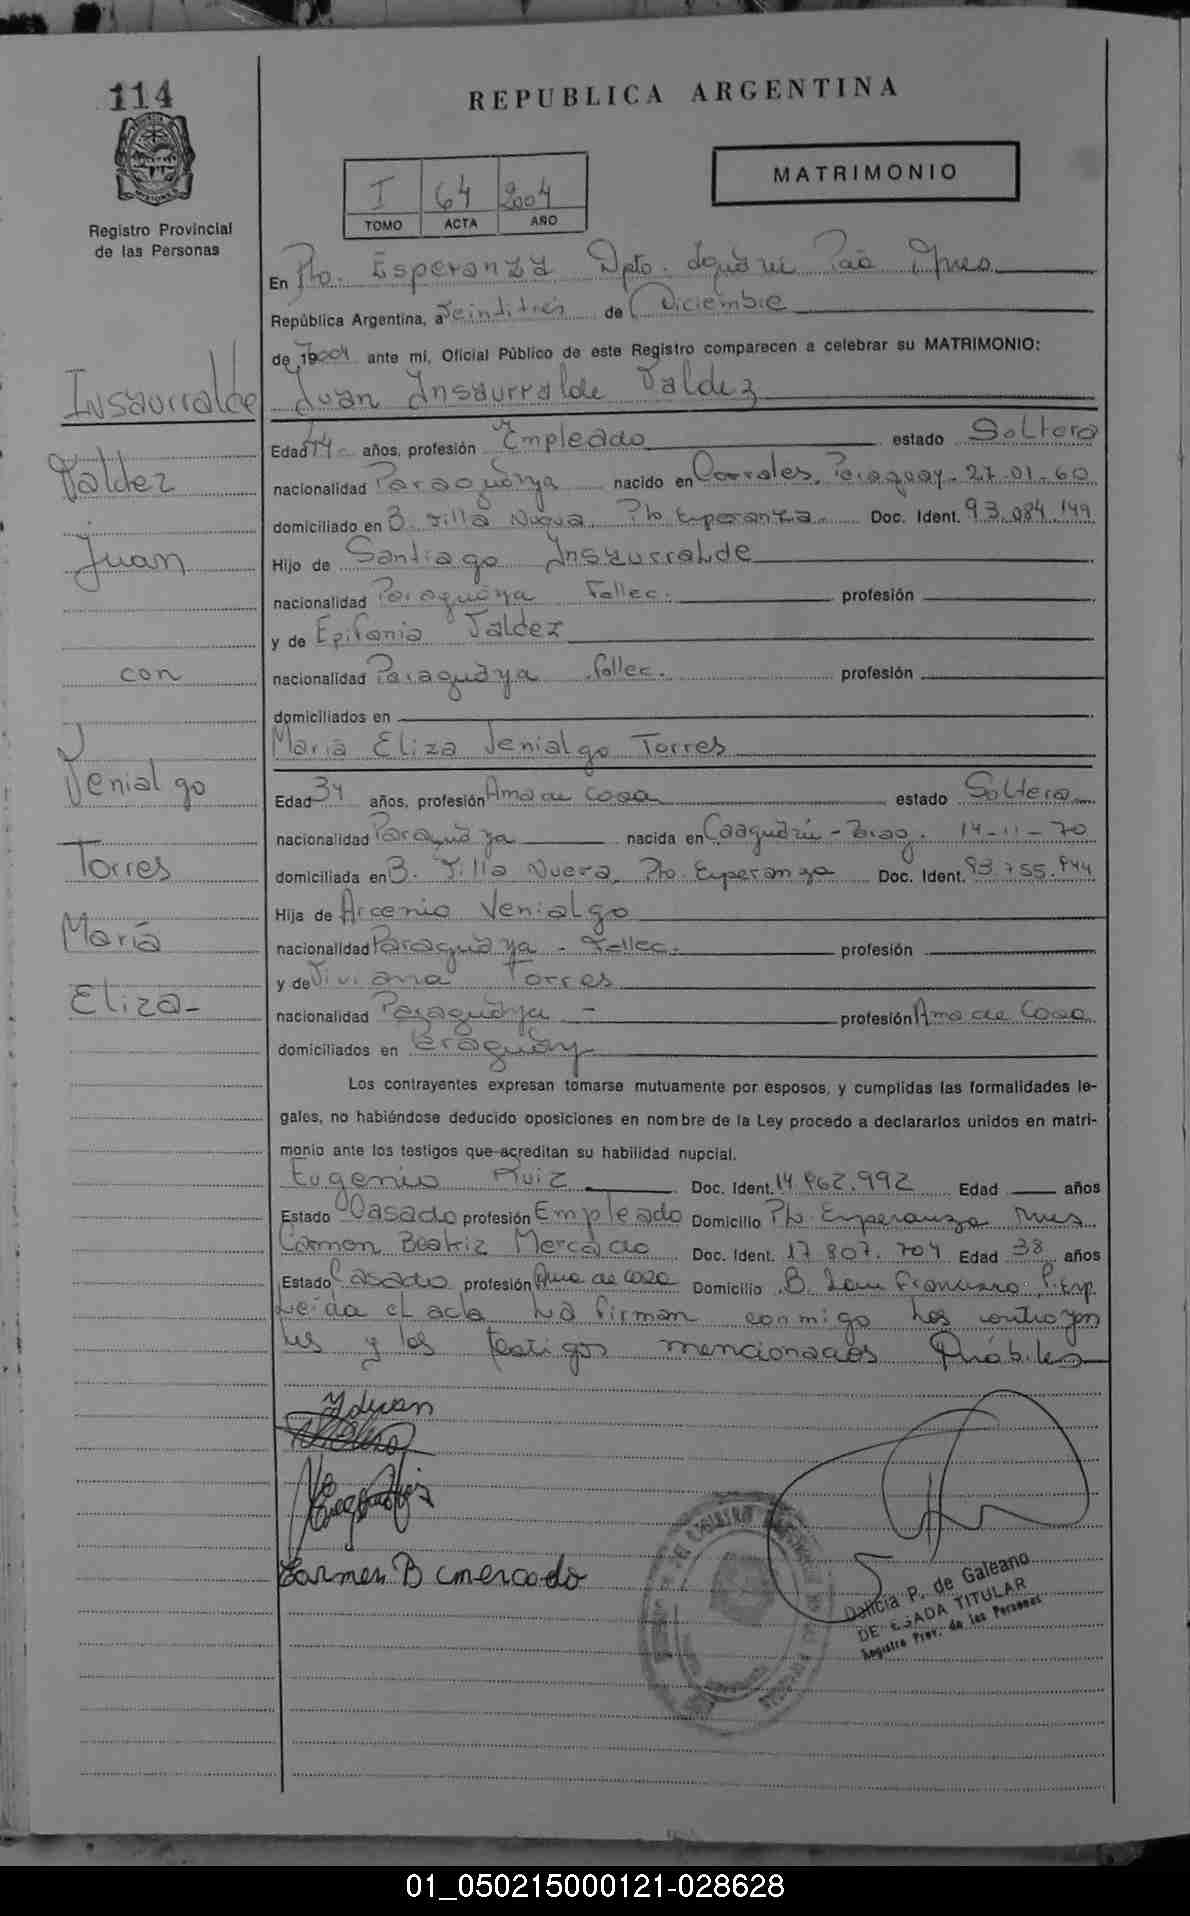 114
REPUBLICA ARGENTINA
MATRIMONIO
I 64 2004
TOMO ACTA AÑO
Registro Provincial
de las Personas
En Pto. Esperanza Dpto. Iguazú Pcia Mnes
República Argentina, a Veintitrés de Diciembre
de 2004 ante mí, Oficial Público de este Registro comparecen a celebrar su MATRIMONIO:
Insaurralde
Valdez
Juan
con
Venialgo
Torres
María
Eliza-
Juan Insaurralde Valdez
Edad 44 años, profesión Empleado estado Soltero
nacionalidad Paraguaya nacido en Corrales, Paraguay - 27-01-60
domiciliado en B. Villa Nueva Pto Esperanza Doc. Ident. 93.084.149
Hijo de Santiago Insaurralde
nacionalidad Paraguaya Fallec. profesión
y de Epifania Valdez
nacionalidad Paraguaya fallec. profesión
domiciliados en
María Eliza Venialgo Torres
Edad 34 años, profesión Ama de Casa estado Soltera
nacionalidad Paraguaya nacida en Caaguazú - Parag. 14-11-70
domiciliada en B. Villa Nueva, Pto. Esperanza Doc. Ident. 93.755.944
Hija de Arcenio Venialgo
nacionalidad Paraguaya - Fallec. profesión
y de Viviana Torres
nacionalidad Paraguaya - profesión Ama de Casa
domiciliados en Paraguay
Los contrayentes expresan tomarse mutuamente por esposos, y cumplidas las formalidades le-
gales, no habiéndose deducido oposiciones en nombre de la Ley procedo a declararlos unidos en matri-
monio ante los testigos que acreditan su habilidad nupcial.
Eugenio Ruiz Doc. Ident. 14.962.992 Edad años
Estado Casado profesión Empleado Domicilio Pto Esperanza Mnes
Carmen Beatriz Mercado Doc. Ident. 17.807.704 Edad 38 años
Estado Casado profesión Ama de casa Domicilio B. San Francisco, P. Esp.
Leída el acta la firman conmigo los contrayen
tes y los testigos mencionados hábiles
Juan
Carmen B Mercado
Dalicia P. de Galeano
DELEGADA TITULAR
Registro Prov. de las Personas
01_050215000121-028628